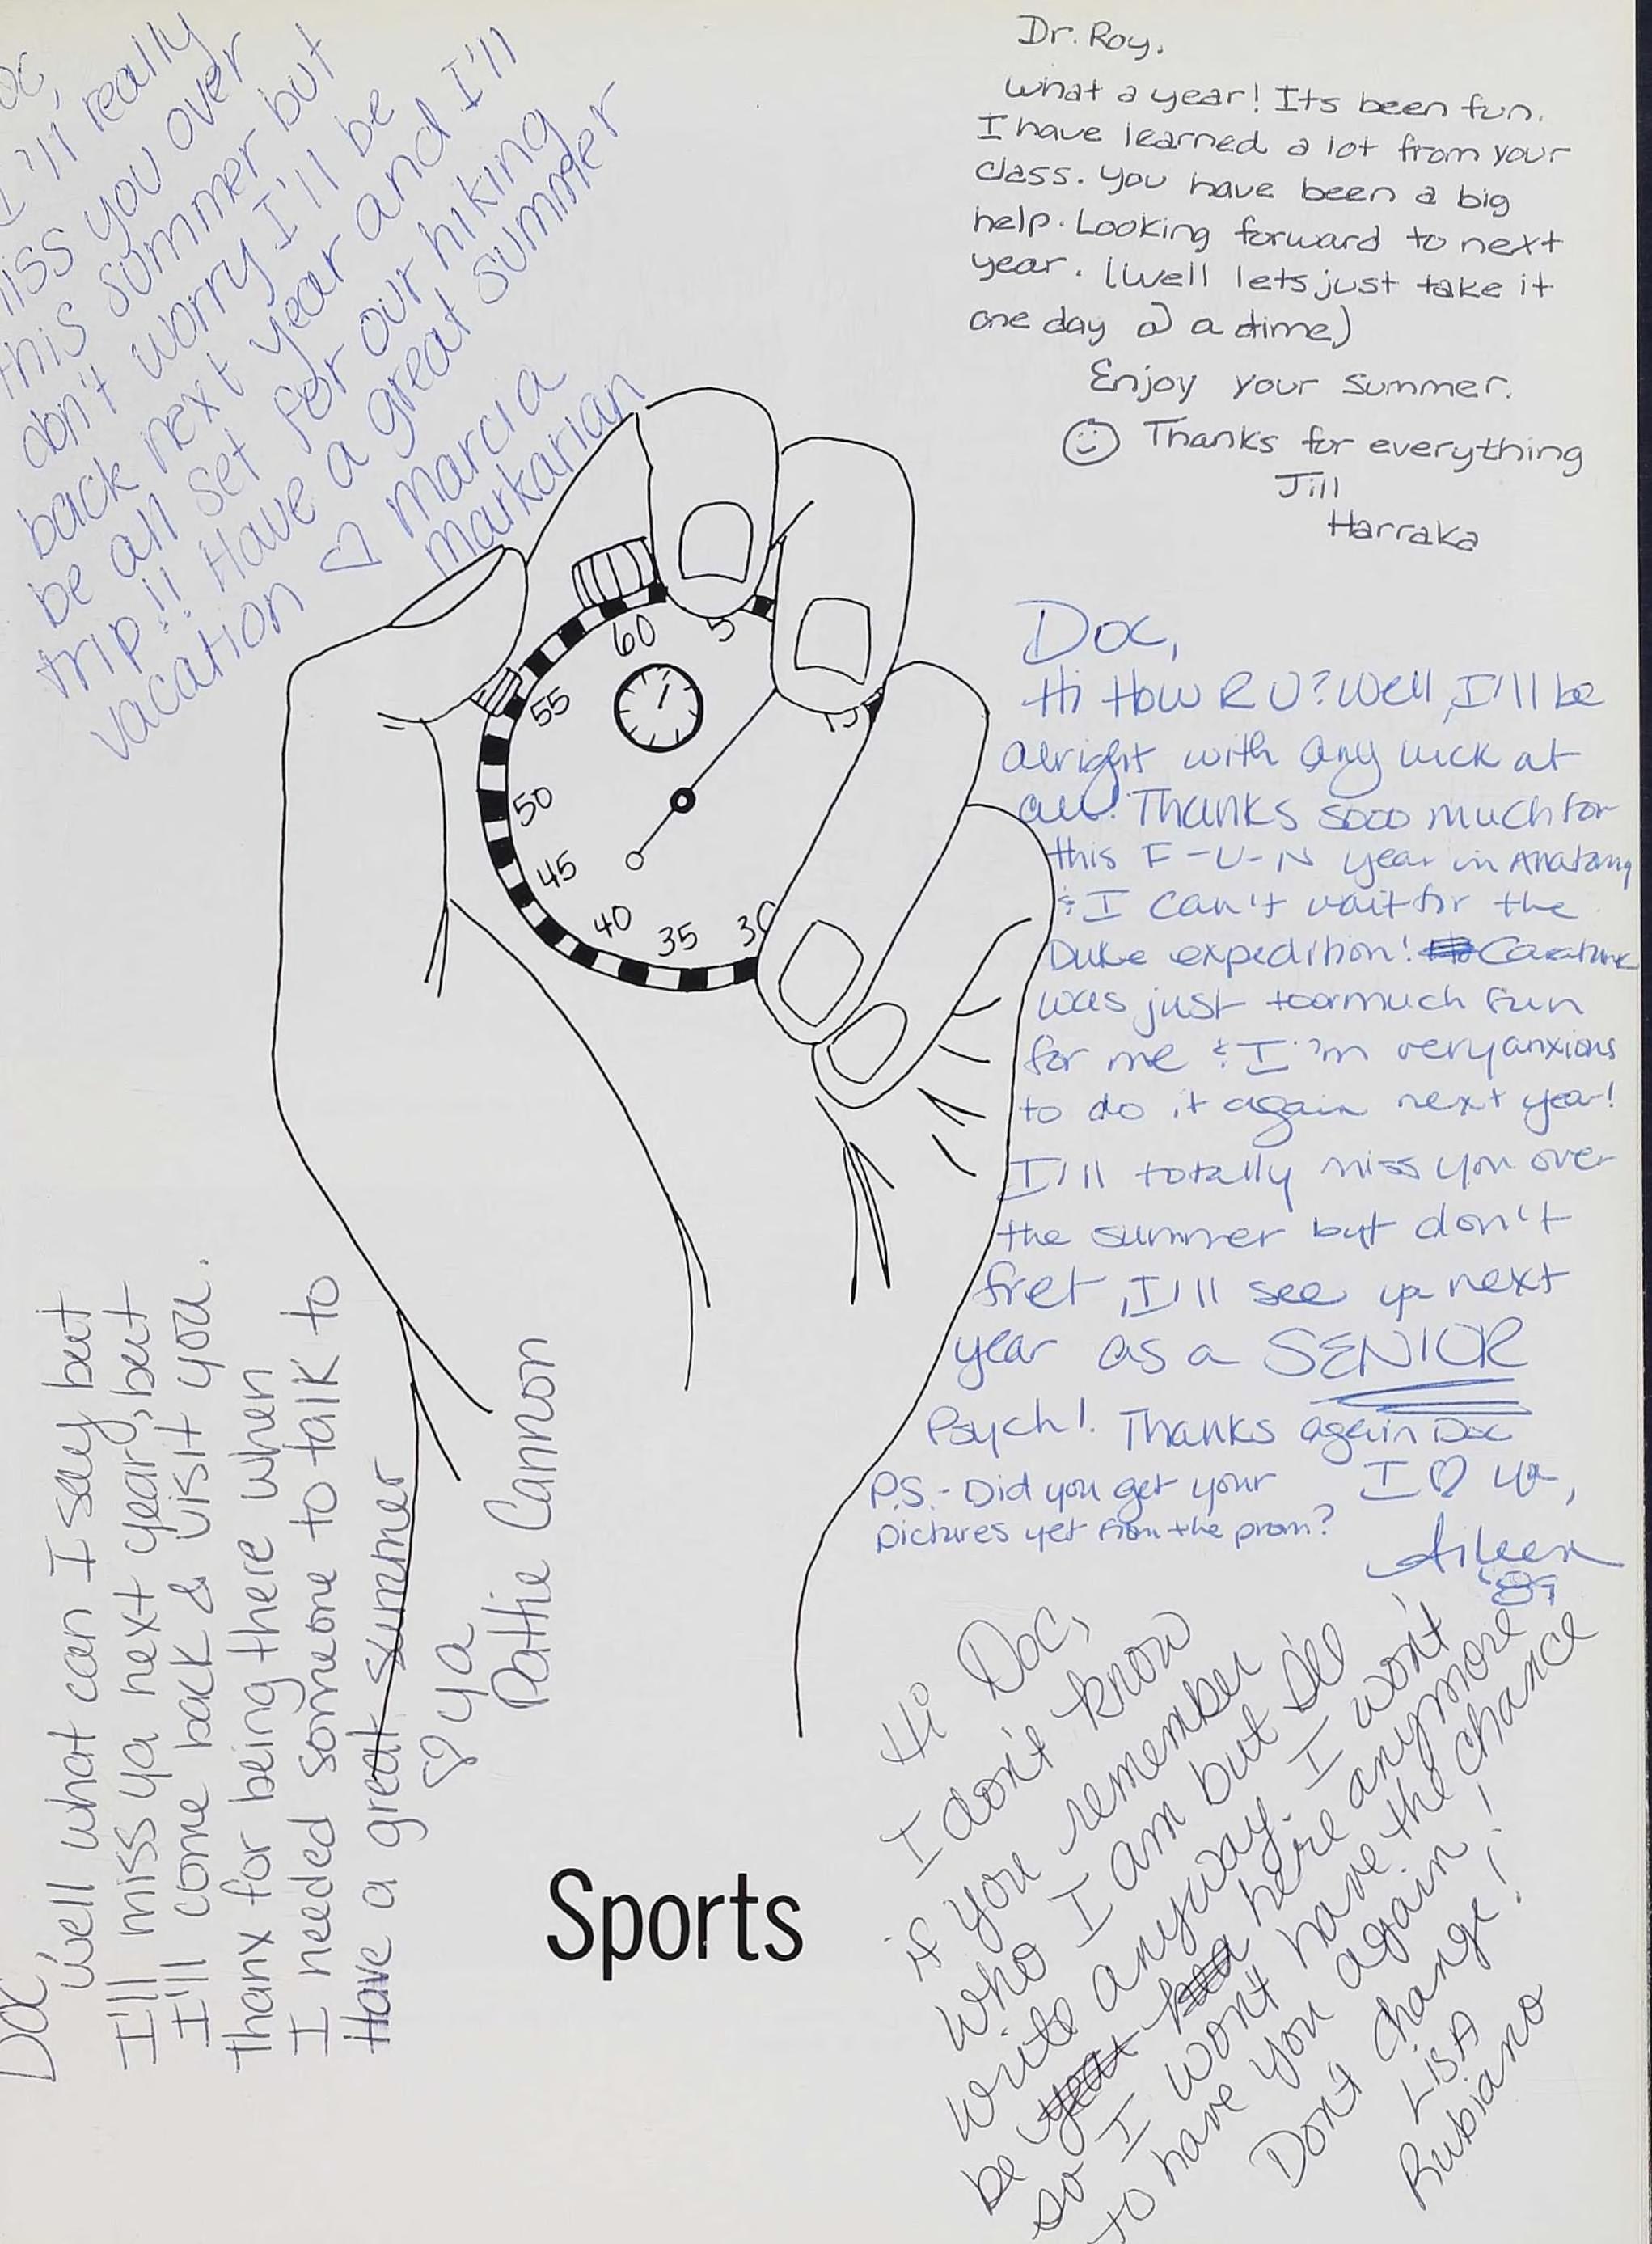 Doc,
I'll really
miss you over
this summer but
don't worry I'll be
back next year and I'll
be all set for our hiking
trip!! Have a great summer
vacation ♡ Marcia
Markarian
Dr. Roy,
What a year! Its been fun.
I have learned a lot from your
class. You have been a big
help. Looking forward to next
year. (Well lets just take it
one day @ a dime)
Enjoy your summer.
☺ Thanks for everything
Jill
Harraka
60
5
55
15
50
45
40
35
30
Doc,
Hi How R U? Well, I'll be
alright with any luck at
all! Thanks sooo much for
this F-U-N year in Anatomy
& I can't wait for the
Duke expedition!
was just toomuch fun
for me & I'm very anxious
to do it again next year!
I'll totally miss you over
the summer but don't
fret, I'll see ya next
year as a SENIOR
Psych! Thanks again Doc
I ♡ ya,
Aileen
'89
P.S.- Did you get your
pictures yet from the prom?
Doc,
Well what can I say but
I'll miss ya next year, but
I'll come back & visit you.
Thanx for being there when
I needed someone to talk to
Have a great summer
♡ ya
Pattie Cannon
Hi Doc,
I don't know
if you remember
who I am but I'll
write anyway. I won't
be year here anymore
so I wont have the chance
to have you again!
Don't change!
LisA
Rubiano
Sports